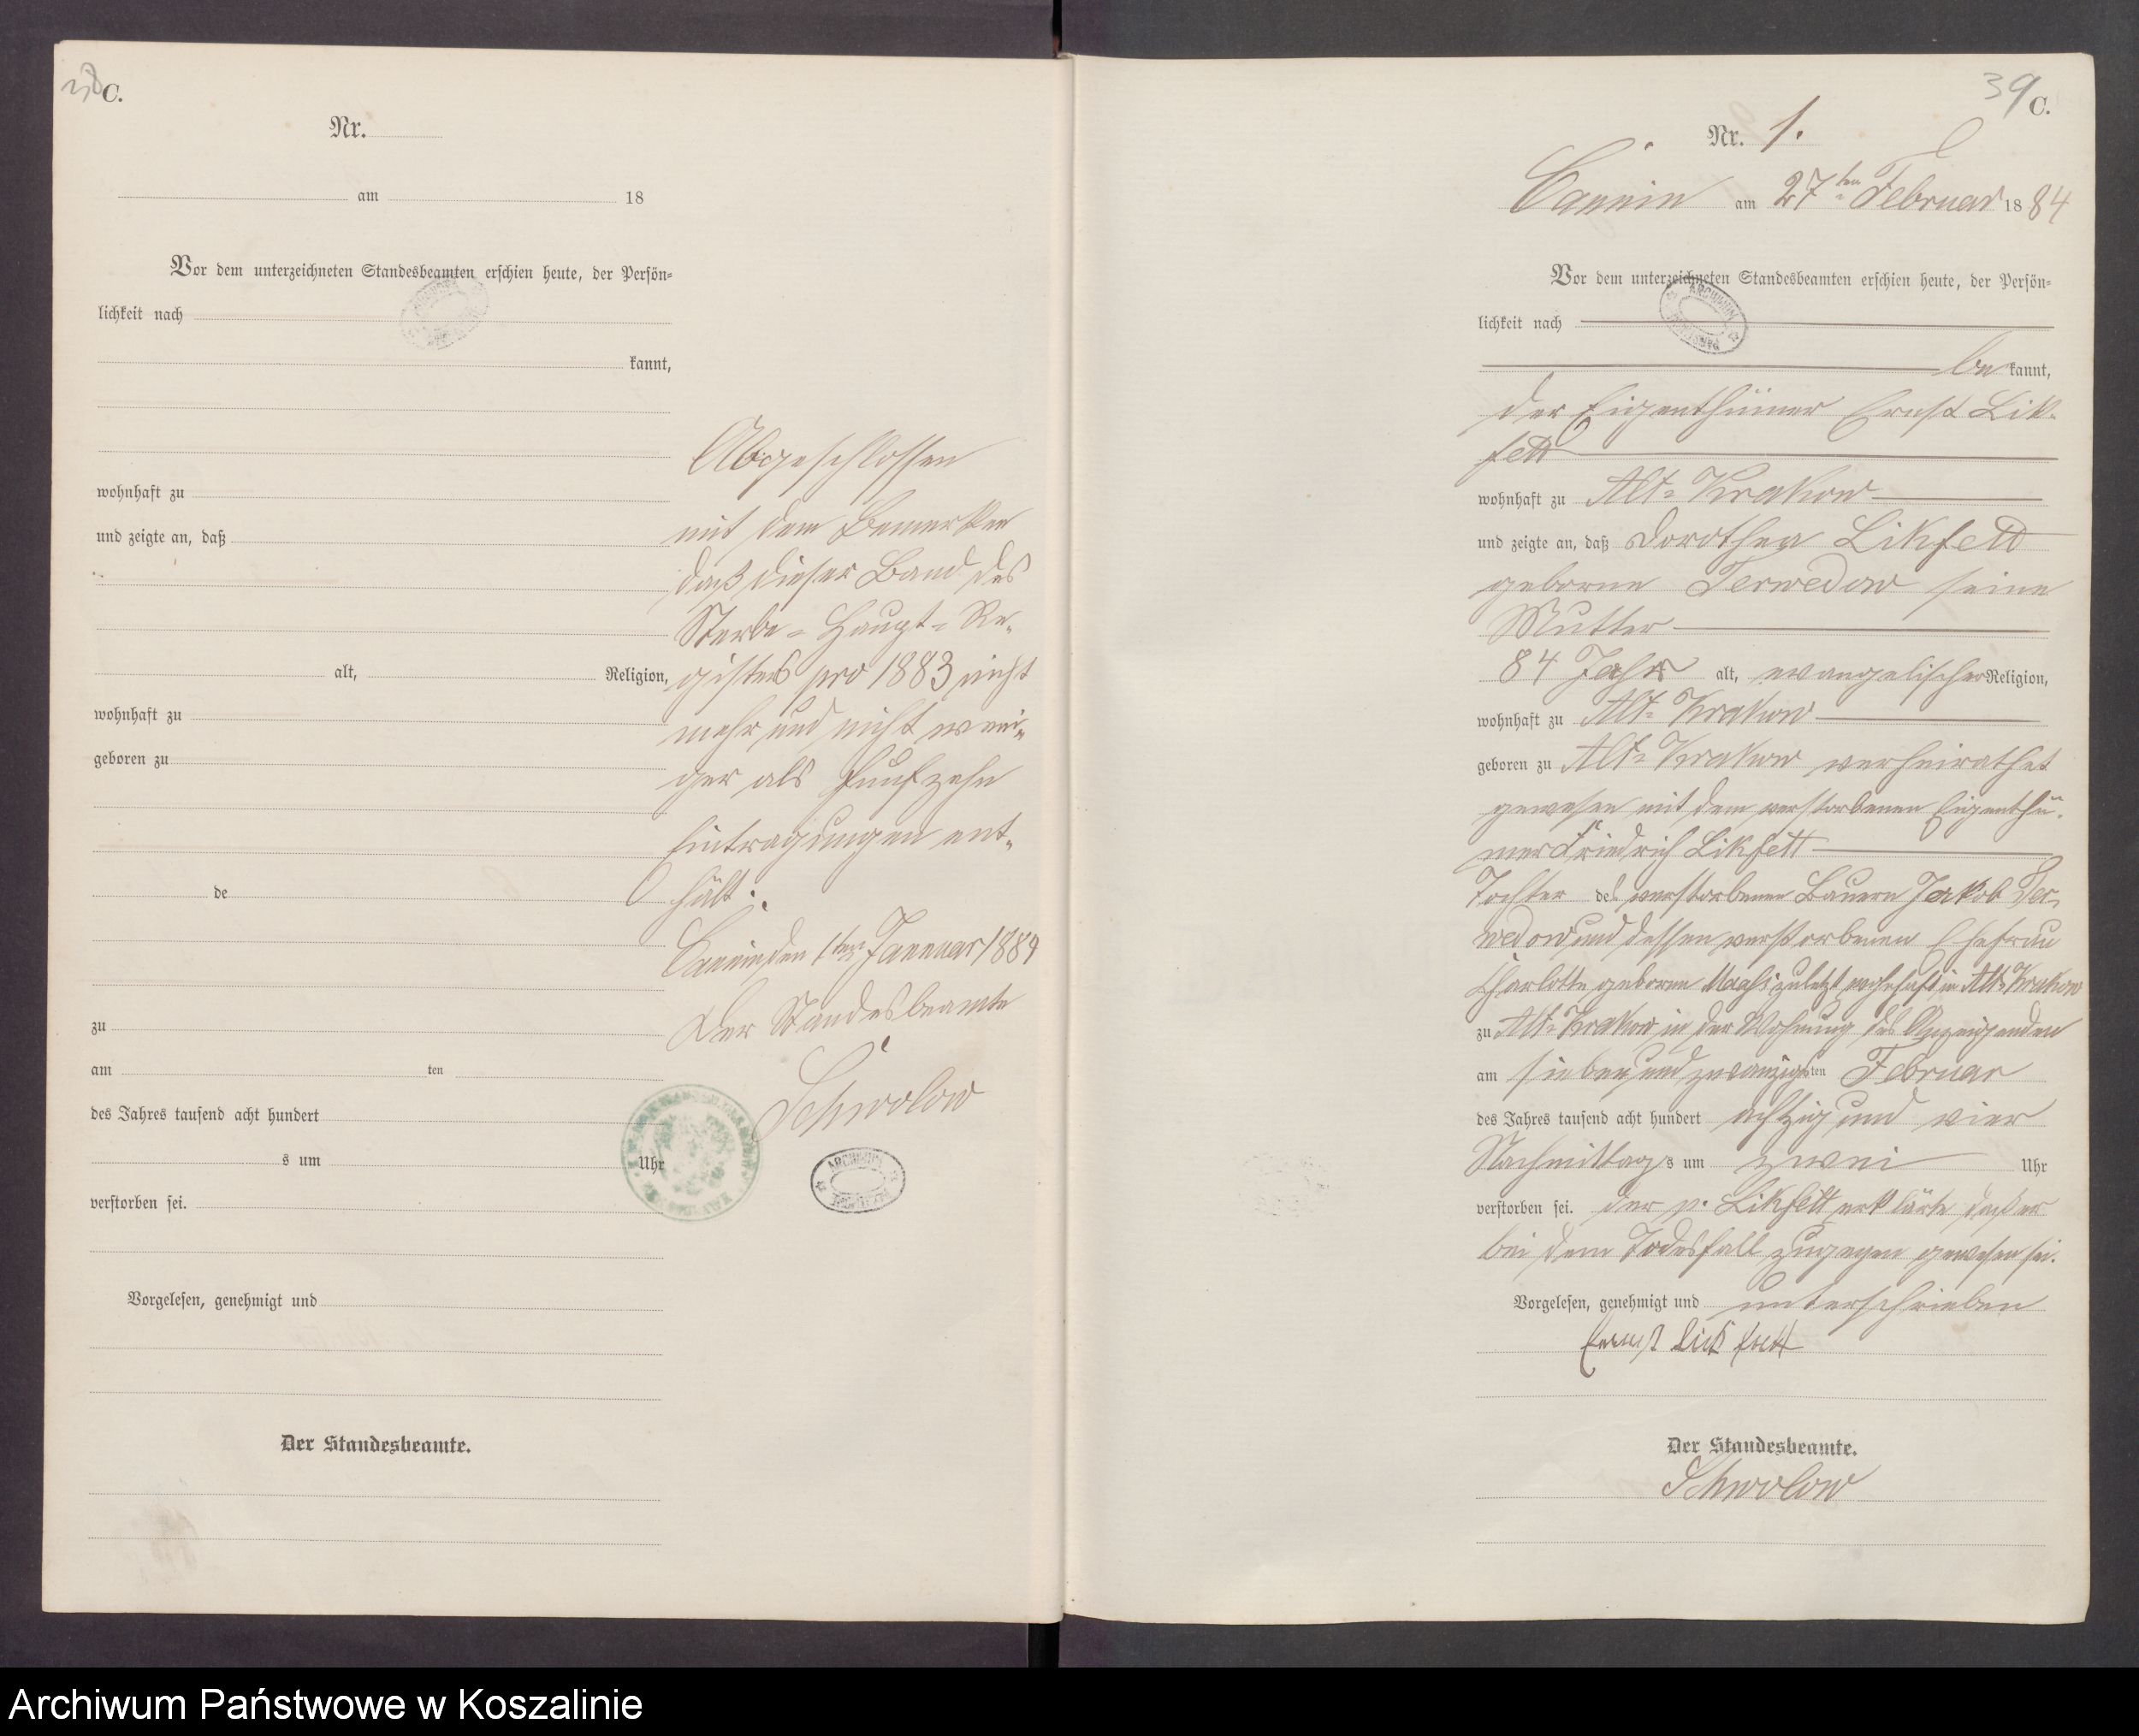 38 C.
Nr.
am 18
Vor dem unterzeichneten Standesbeamten erschien heute, der Persön-
lichkeit nach
kannt,
wohnhaft zu
und zeigte an, daß
alt, Religion,
wohnhaft zu
geboren zu
de
zu
am ten
des Jahres tausend acht hundert
s um Uhr
verstorben sei.
Vorgelesen, genehmigt und
Der Standesbeamte.
Abgeschlossen
mit dem Bemerken
daß dieser Band des
Sterbe-Haupt-Re-
gisters pro 1883 nicht
mehr und nicht weni-
ger als fünfzehn
Eintragungen ent-
hält.
Cannin den 1ten Januar 1884
Der Standesbeamte
Schwolow
ARCHIWUM
39 C.
Nr. 1.
Cannin am 27ten Februar 1884
Vor dem unterzeichneten Standesbeamten erschien heute, der Persön-
lichkeit nach
be kannt,
der Eigenthümer Ernst Lik-
fett
wohnhaft zu Alt-Krakow
und zeigte an, daß Dorothea Likfett
geborne Terwedow seine
Mutter
84 Jahr alt, evangelischer Religion,
wohnhaft zu Alt-Krakow
geboren zu Alt-Krakow verheirathet
gewesen mit dem verstorbenen Eigenthü-
mer Friedrich Likfett
Tochter des verstorbenen Bauern Jakob Ter-
wedow und dessen verstorbenen Ehefrau
Charlotte geborne Maahs zuletzt wohnhaft in Alt-Krakow
zu Alt-Krakow in der Wohnung des Anzeigenden
am sieben und zwanzigsten Februar
des Jahres tausend acht hundert achtzig und vier
Nachmittags um zwei Uhr
verstorben sei. der p. Likfett erklärte daß er
bei dem Todesfall zugegen gewesen sei.
Vorgelesen, genehmigt und unterschrieben
Ernst Lickfett
Der Standesbeamte.
Schwolow
Archiwum Państwowe w Koszalinie